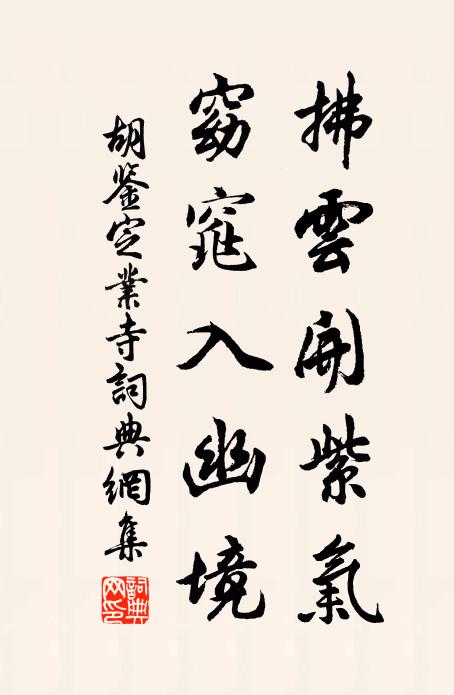 拂雲開紫氣
窈窕入幽境
胡鉴定業寺詞典網集
詞典網印